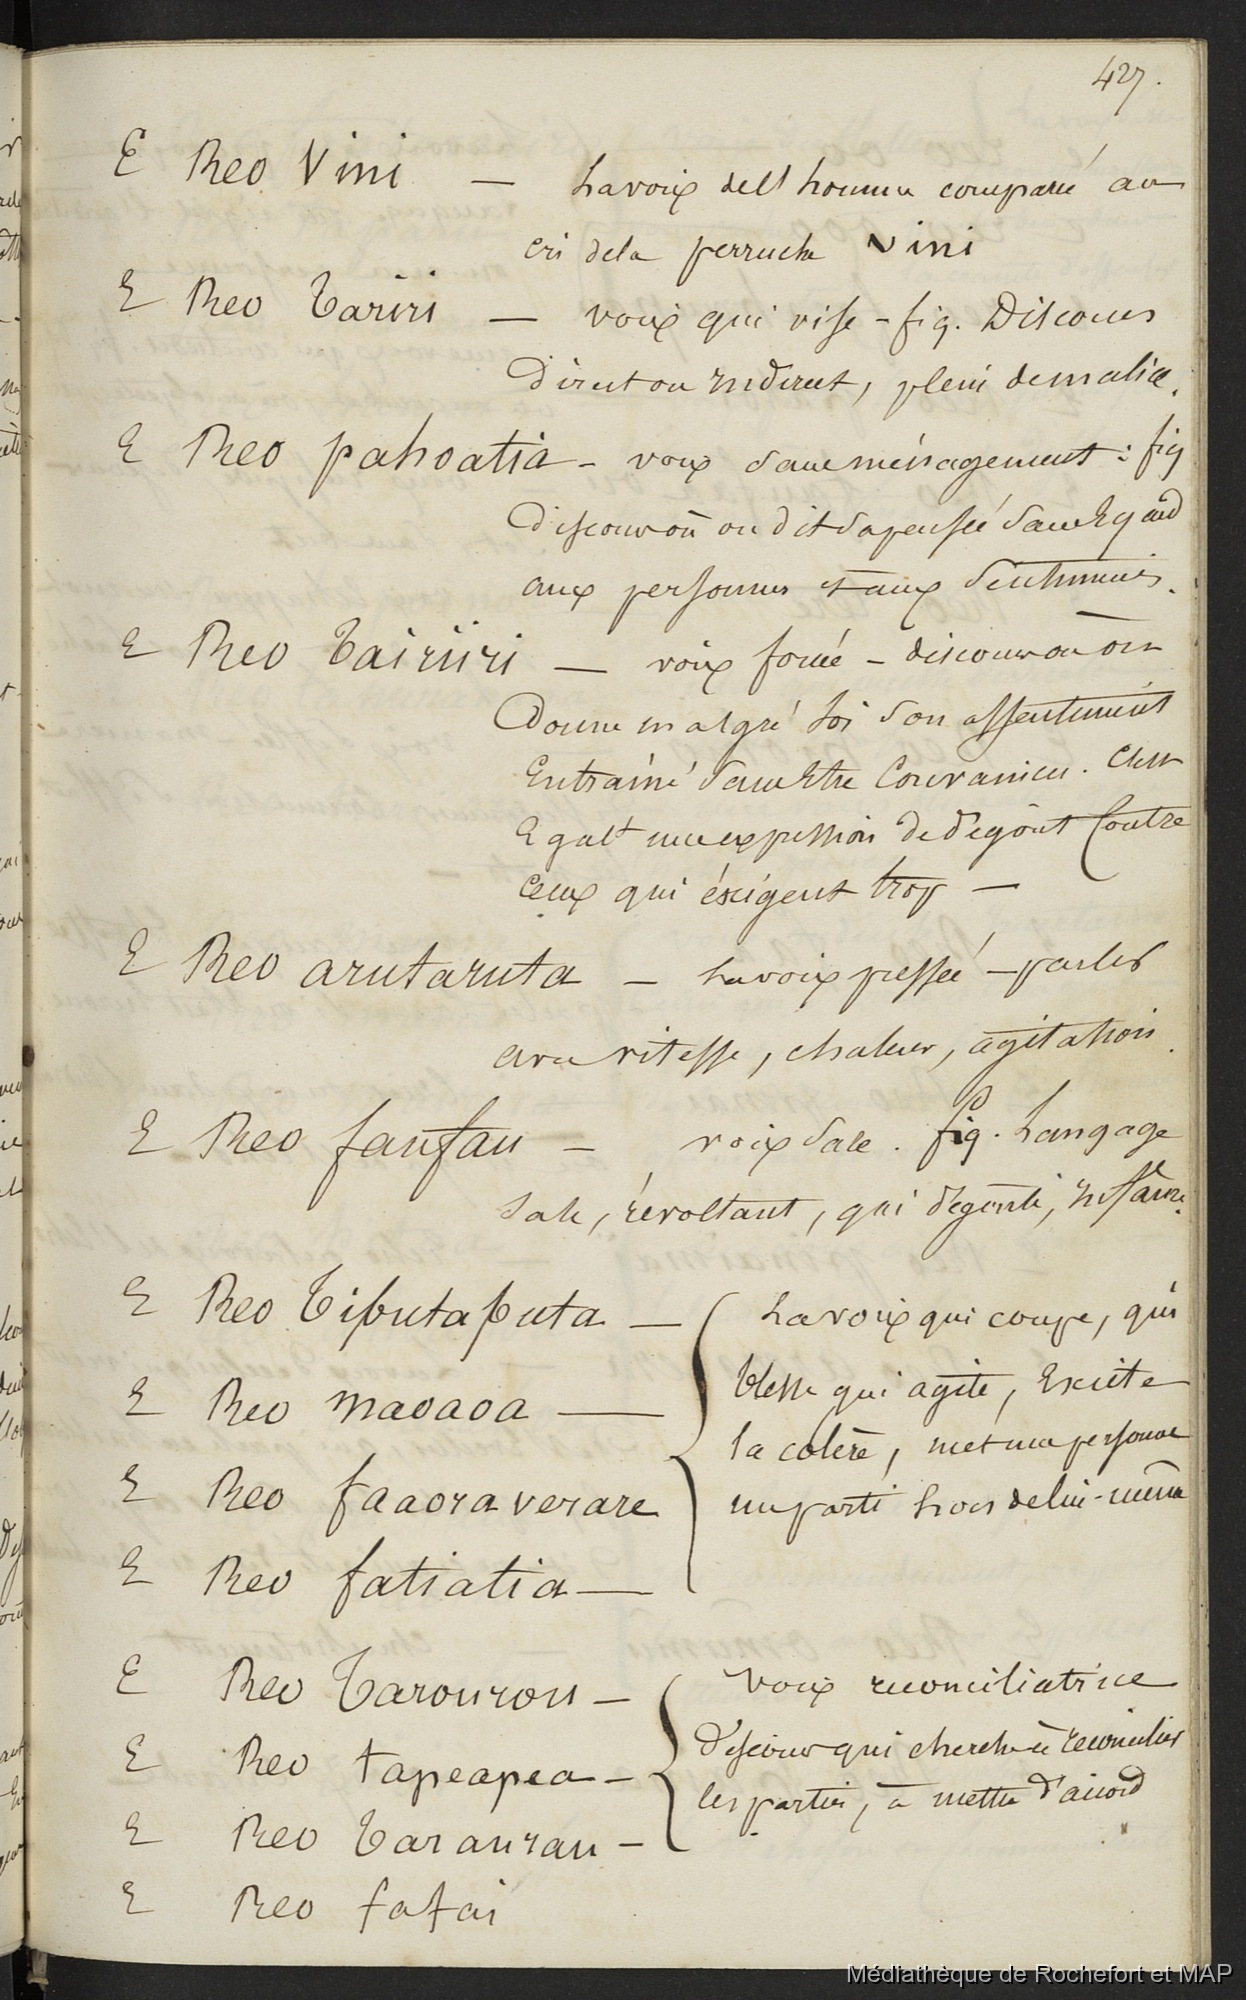 427.
E Reo Vini — La voix de l'homme comparée au
cri de la perruche Vini
E Reo Tariri — voix qui vise - fig. Discours
Direct ou Indirect, plein de malice.
E Reo pahoatia - voix sans ménagement : fig
Discours où on dit sa pensée sans Egard
aux personnes et aux Sentiments.
E Reo Tairiiri — voix forcée - discours où on
Donne malgré soi son assentiment
Entrainé sans Etre Convaincu. C'est
Egalt une expression de dégôut Contre
ceux qui éxigent trop —
E Reo arutaruta — La voix pressée - parler
avec vitesse, chaleur, agitation.
E Reo faufau — voix sale. fig. Langage
sale, révoltant, qui dégoute,
E Reo Tiputaputa — La voix qui coupe, qui
blesse qui agite, Excite
E Reo maoaoa —
la colère, met une personne
E Reo faaoraverare
un parti hors de lui-même
E Reo fatiatia —
E Reo Tarourou — Voix reconciliatrice
Discours qui cherche à reconcilier
E Reo tapeapea —
les parties, à mettre d'accord
E Reo Taraurau —
E Reo fafai
Médiathèque de Rochefort et MAP